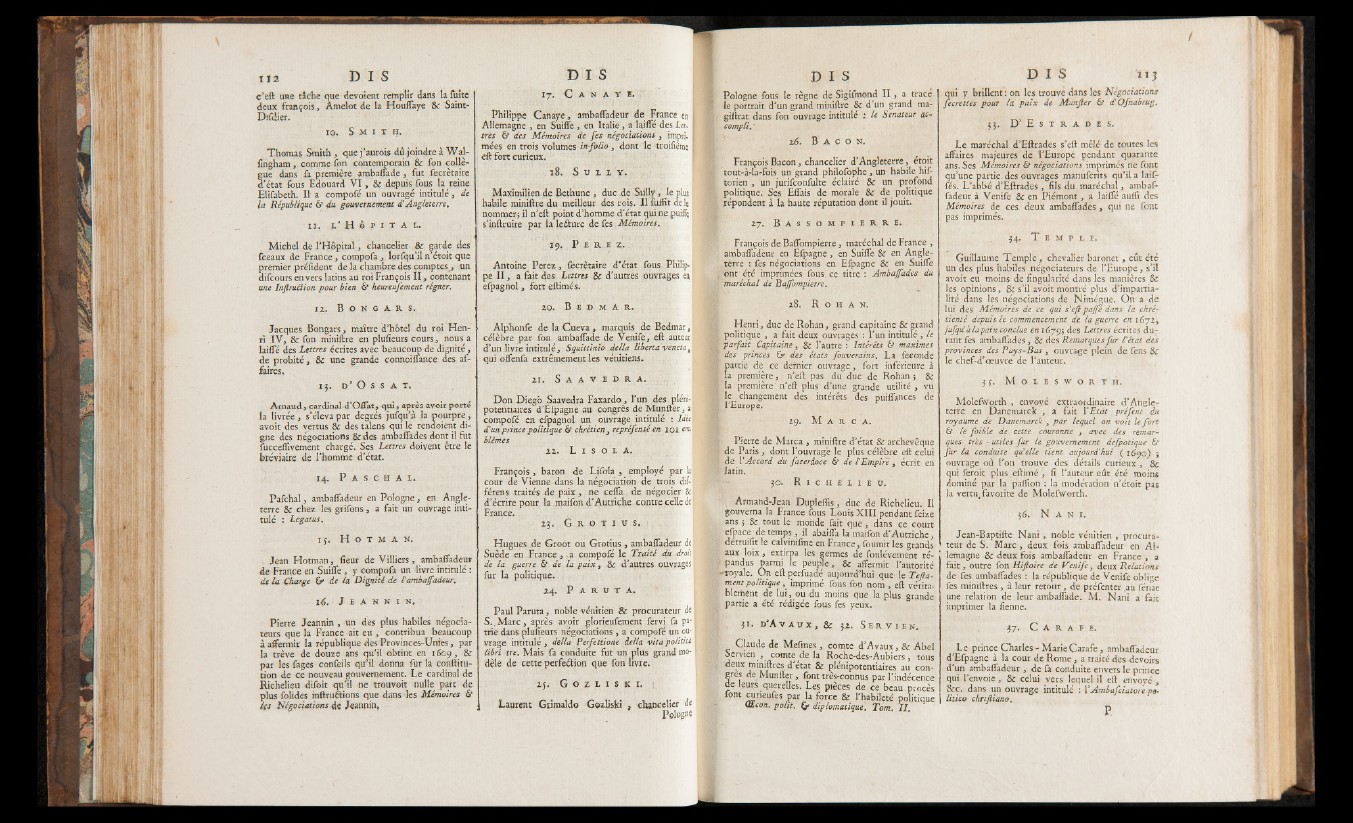 112 D I S
c'eſt une tâche que devoient remplir dans la ſuite
deux françois, Amelot de la Houſſaye & Saint-
Diſdier.
10. S M I T H.
Thomas Smith, que j'aurois dû joindre à Wal-
ſingham, comme ſon contemporain & ſon collè-
gue dans ſa première ambaſſade, fut ſecrètaire
d'état ſous Edouard VI, & depuis ſous la reine
Eliſabeth. Il a compoſé un ouvrage intitulé, de
la République & du gouvernement d'Angleterre.
11. L' H ô P I T A L.
Michel de l'Hôpital, chancelier & garde des
ſceaux de France, compoſa, lorſqu'il n'étoit que
premier préſident de la chambre des comptes, un
diſcours en vers latins au roi François II, contenant
une Inſtruction pour bien & heureuſement régner.
12. B O N G A R S.
Jacques Bongars, maître d'hôtel du roi Hen-
ri IV, & ſon miniſtre en pluſieurs cours, nous a
laiſſé des Lettres écrites avec beaucoup de dignité,
de probité, & une grande connoiſſance des af-
faires.
13. D' O S S A T.
Arnaud, cardinal d'Oſſat, qui, après avoir porté
la livrée, s'éleva par degrés juſqu'à la pourpre,
avoit des vertus & des talens qui le rendoient di-
gne des négociations & des ambaſſades dont il fut
ſucceſſivement chargé. Ses Lettres doivent être le
bréviaire de l'homme d'état.
14. P A S C H A L.
Paſchal, ambaſſadeur en Pologne, en Angle-
terre & chez les griſons, a fait un ouvrage inti-
tulé : Legatus.
15. H O T M A N.
Jean Hotman, ſieur de Villiers, ambaſſadeur
de France en Suiſſe, y compoſa un livre intitulé :
de la Charge & de la Dignité de l'ambaſſadeur.
16. J E A N N I N.
Pierre Jeannin, un des plus habiles négocia-
teurs que la France ait eu, contribua beaucoup
à affermir la république des Provinces-Unies, par
la trève de douze ans qu'il obtint en 1609, &
par les ſages conſeils qu'il donna ſur la conſtitu-
tion de ce nouveau gouvernement. Le cardinal de
Richelieu diſoit qu'il ne trouvoit nulle part de
plus ſolides inſtructions que dans les Mémoires &
les Négociations de Jeannin.
D I S
17. C A N A Y E.
Philippe Canaye, ambaſſadeur de France en
Allemagne, en Suiſſe, en Italie, a laiſſé des Let-
tres & des Mémoires de ſes négociations, impri-
mées en trois volumes in-folio, dont le troiſième
eſt fort curieux.
18. S U L L Y.
Maximilien de Bethune, duc de Sully, le plus
habile miniſtre du meilleur des rois. Il ſuffit de le
nommer; il n'eſt point d'homme d'état qui ne puiſſe
s'inſtruire par la lecture de ſes Mémoires.
19. P E R E Z.
Antoine Perez, ſecrètaire d'état ſous Philip-
pe II, a fait des Lettres & d'autres ouvrages en
eſpagnol, fort eſtimés.
20. B E D M A R.
Alphonſe de la Cueva, marquis de Bedmar,
célèbre par ſon ambaſſade de Veniſe, eſt auteur
d'un livre intitulé, Squittinio della liberta veneta,
qui offenſa extrêmement les vénitiens.
21. S A A V E D R A.
Don Diego Saavedra Faxardo, l'un des pléni-
potentiaires d'Eſpagne au congrès de Munſter, a
compoſé en eſpagnol un ouvrage intitulé : Idée
d'un prince politique & chrétien, repréſenté en 101 em-
blêmes
22. L I S O L A.
François, baron de Liſola, employé par la
cour de Vienne dans la négociation de trois dif-
férens traités de paix, ne ceſſa de négocier &
d'écrire pour la maiſon d'Autriche contre celle de
France.
23. G R O T I U S.
Hugues de Groot ou Grotius, ambaſſadeur de
Suède en France, a compoſé le Traité du droit
de la guerre & de la paix, & d'autres ouvrages
ſur la politique.
24. P A R U T A.
Paul Paruta, noble vénitien & procurateur de
S. Marc, après avoir glorieuſement ſervi ſa pa-
trie dans pluſieurs négociations, a compoſé un ou-
vrage intitulé, della Perfettione della vita politica
libri tre. Mais ſa conduite fut un plus grand mo-
dèle de cette perfection que ſon livre.
25. G O Z L I S K I.
Laurent Grimaldo Gozliski, chancelier de
Pologne
D I S
Pologne ſous le règne de Sigiſmond II, a tracé
le portrait d'un grand miniſtre & d'un grand ma-
giſtrat dans ſon ouvrage intitulé : le Senateur ac-
compli.
26. B A C O N.
François Bacon, chancelier d'Angleterre, étoit
tout-à-la-fois un grand philoſophe, un habile hiſ-
torien, un juriſconſulte éclairé & un profond
politique. Ses Eſſais de morale & de politique
répondent à la haute réputation dont il jouit.
27. B A S S O M P I E R R E.
François de Baſſompierre, maréchal de France,
ambaſſadeur en Eſpagne, en Suiſſe & en Angle-
terre : ſes négociations en Eſpagne & en Suiſſe
ont été imprimées ſous ce titre : Ambaſſades du
maréchal de Baſſompierre.
28. R O H A N.
Henri, duc de Rohan, grand capitaine & grand
politique, a fait deux ouvrages : l'un intitulé, le
parfait Capitaine, & l'autre : Intérêts & maximes
des princes & des états ſouverains. La ſeconde
partie de ce dernier ouvrage, fort inférieure à
la première, n'eſt pas du duc de Rohan; &
la première n'eſt plus d'une grande utilité, vu
le changement des intérêts des puiſſances de
l'Europe.
29. M A R C A.
Pierre de Marca, miniſtre d'état & archevêque
de Paris, dont l'ouvrage le plus célèbre eſt celui
de l'Accord du ſacerdoce & de l'Empire, écrit en
latin.
30. R I C H E L I E U.
Armand-Jean Dupleſſis, duc de Richelieu. Il
gouverna la France ſous Louis XIII pendant ſeize
ans; & tout le monde ſait que, dans ce court
eſpace de temps, il abaiſſa la maiſon d'Autriche,
détruiſit le calviniſme en France, ſoumit les grands
aux loix, extirpa les germes de ſoulèvement ré-
pandus parmi le peuple, & affermit l'autorité
royale. On eſt perſuadé aujourd'hui que le Teſta-
ment politique, imprimé ſous ſon nom, eſt vérita-
blement de lui, ou du moins que la plus grande
partie a été rédigée ſous ſes yeux.
31. D'A V A U X, & 32. S E R V I E N.
Claude de Meſmes, comte d'Avaux, & Abel
Servien, comte de la Roche-des-Aubiers, tous
deux miniſtres d'état & plénipotentiaires au con-
grès de Munſter, ſont très-connus par l'indécence
de leurs querelles. Les pièces de ce beau procès
ſont curieuſes par la force & l'habileté politique
Œcon. polit. & diplomatique. Tom. II.
D I S 113
qui y brillent: on les trouve dans les Négociations
ſecrettes pour la paix de Munſter & d'Oſnabrug.
33. D' E S T R A D E S.
Le maréchal d'Eſtrades s'eſt mêlé de toutes les
affaires majeures de l'Europe pendant quarante
ans. Ses Mémoires & négociations imprimés ne ſont
qu'une partie des ouvrages manuſcrits qu'il a laiſ-
ſés. L'abbé d'Eſtrades, fils du maréchal, ambaſ-
ſadeur à Veniſe & en Piémont, a laiſſé auſſi des
Mémoires de ces deux ambaſſades, qui ne ſont
pas imprimés.
34. T E M P L E.
Guillaume Temple, chevalier baronet, eût été
un des plus habiles négociateurs de l'Europe, s'il
avoit eu moins de ſingularité dans les manières &
les opinions, & s'il avoit montré plus d'impartia-
lité dans les négociations de Nimégue. On a de
lui des Mémoires de ce qui s'eſt paſſé dans la chré-
tienté depuis le commencement de la guerre en 1672,
juſqu'à la paix conclue en 1679; des Lettres écrites du-
rant ſes ambaſſades, & des Remarques ſur l'état des
provinces des Pays-Bas, ouvrage plein de ſens &
le chef-d'œuvre de l'auteur.
35. M O L E S W O R T H.
Moleſworth, envoyé extraordinaire d'Angle-
terre en Danemarck, a fait l'Etat préſent du
royaume de Danemarck, par lequel on voit le fort
& le foible de cette couronne, avec des remar-
ques très-utiles ſur le gouvernement deſpotique &
ſur la conduite qu'elle tient aujourd'hui (1690);
ouvrage où l'on trouve des détails curieux, &
qui ſeroit plus eſtimé, ſi l'auteur eût été moins
dominé par la paſſion : la modération n'étoit pas
la vertu favorite de Moleſworth.
36. N A N I.
Jean-Baptiſte Nani, noble vénitien, procura-
teur de S. Marc, deux fois ambaſſadeur en Al-
lemagne & deux fois ambaſſadeur en France, a
fait, outre ſon Hiſtoire de Veniſe, deux Relations
de ſes ambaſſades : la république de Veniſe oblige
ſes miniſtres, à leur retour, de préſenter au ſénat
une relation de leur ambaſſade. M. Nani a fait
imprimer la ſienne.
37. C A R A F E.
Le prince Charles-Marie Carafe, ambaſſadeur
d'Eſpagne à la cour de Rome, a traité des devoirs
d'un ambaſſadeur, de ſa conduite envers le prince
qui l'envoie, & celui vers lequel il eſt envoyé,
&c. dans un ouvrage intitulé : l'Ambaſciatore po-
litico chriſtiano.
P